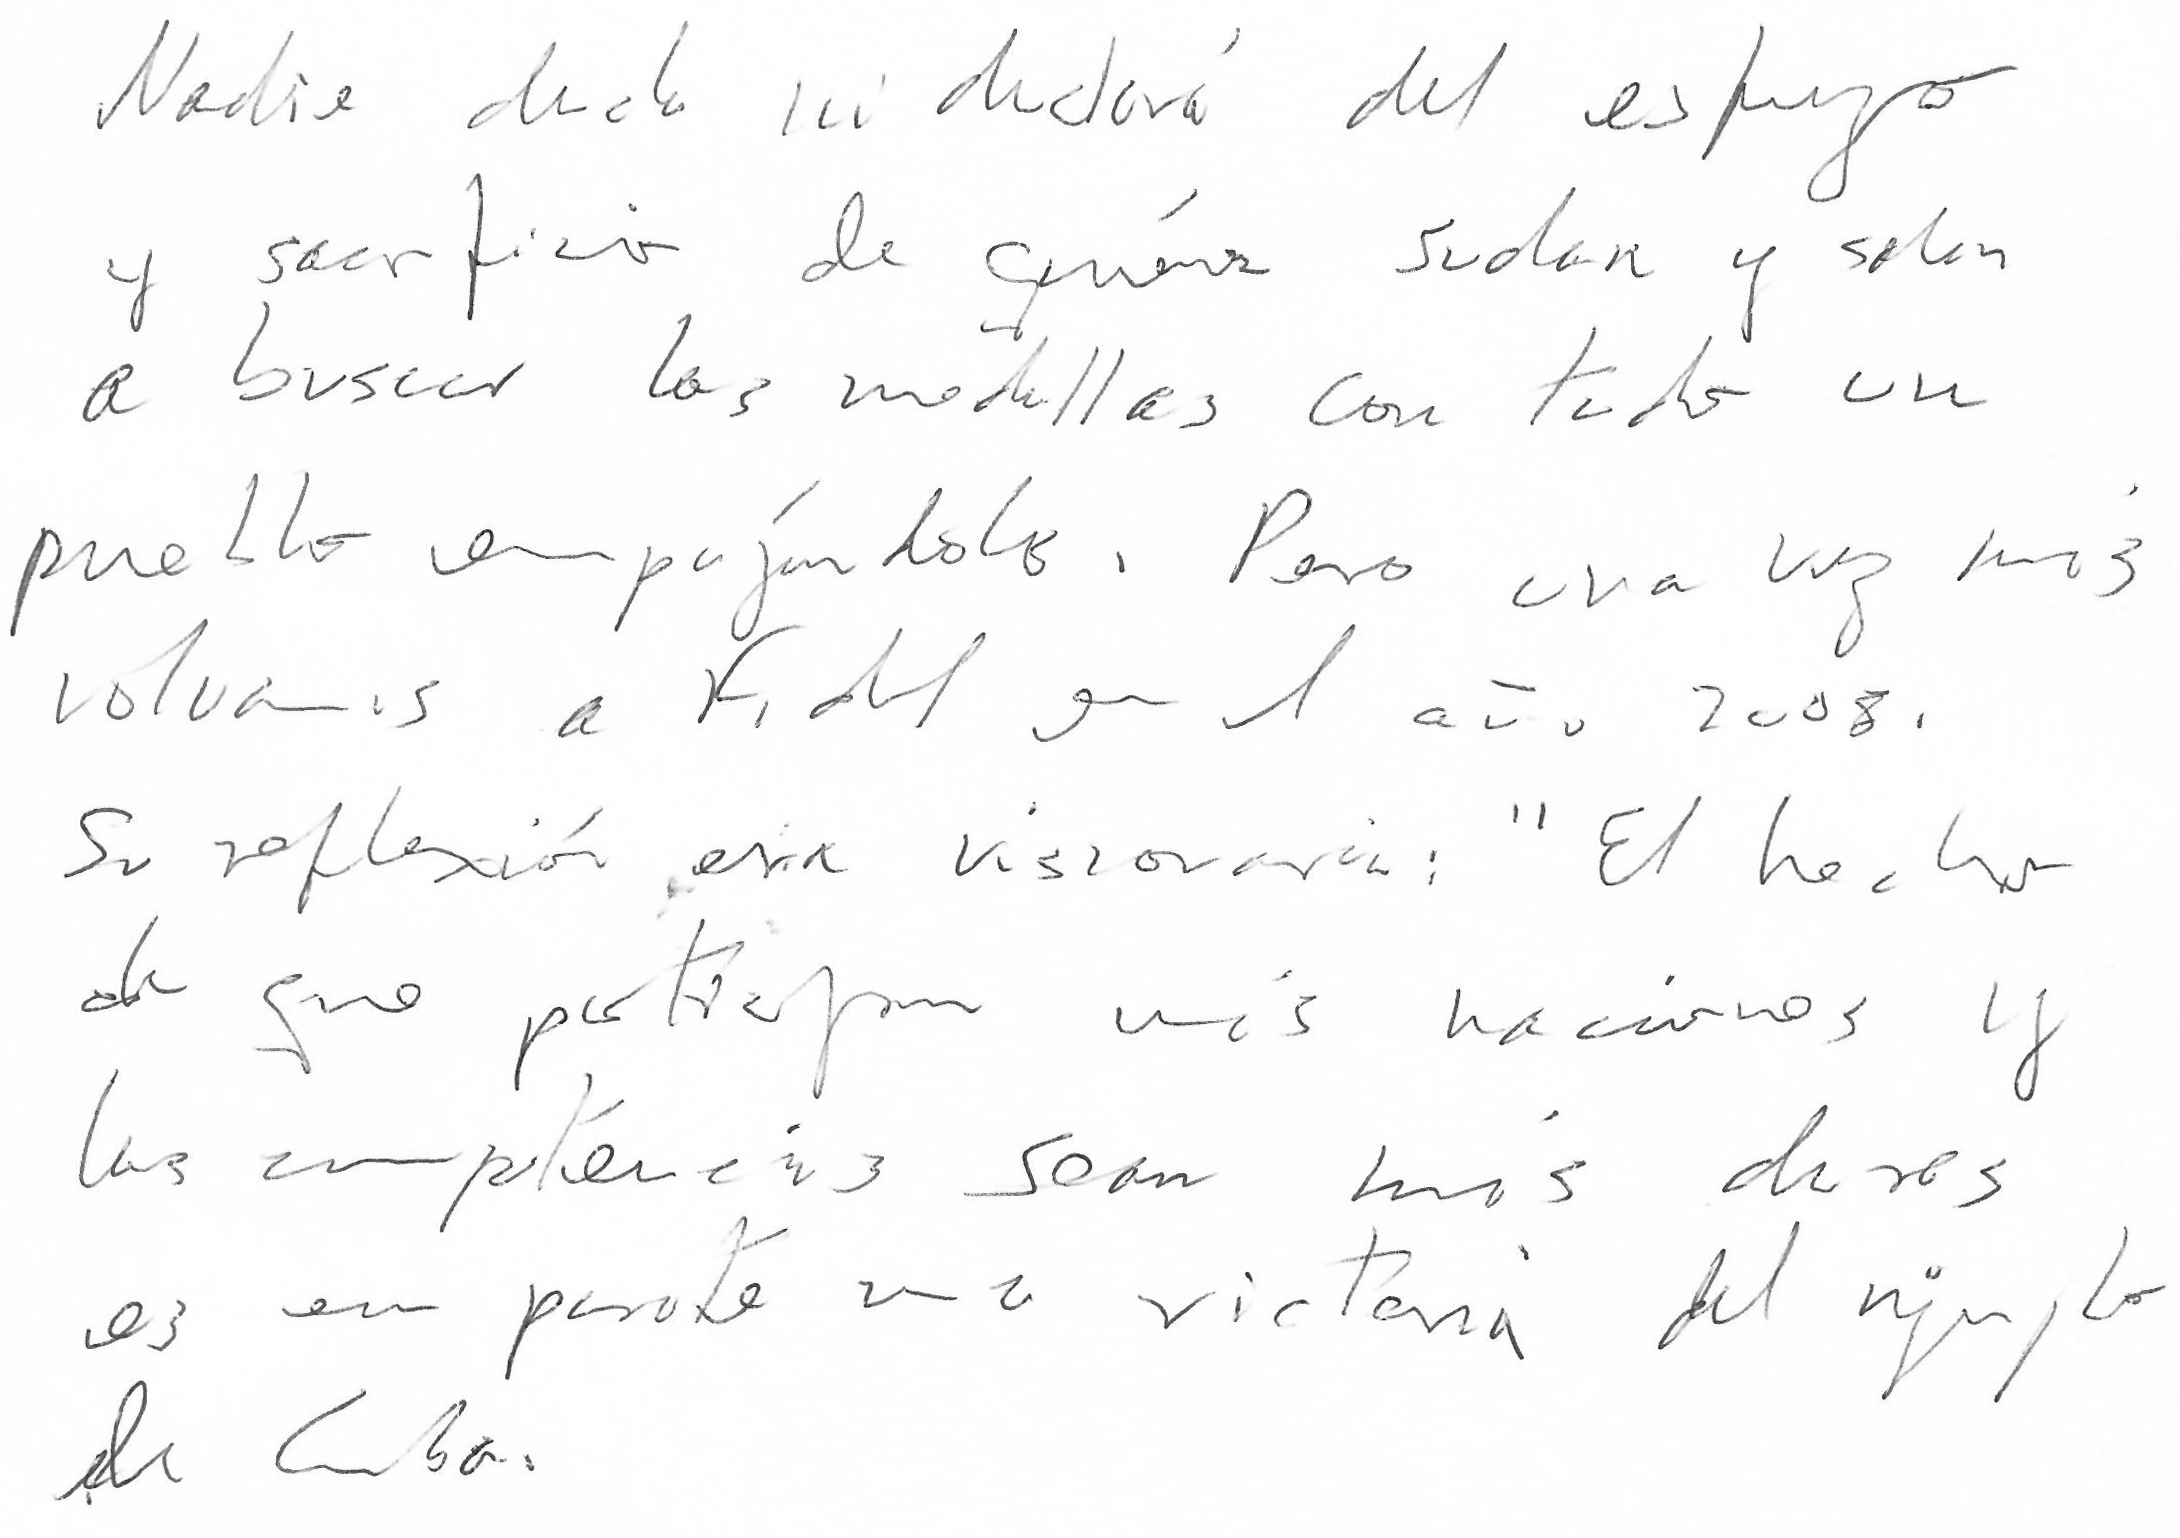 Nadie duda ni dudará del esfuerzo
y sacrificio de quiénes sudan y salen
a buscar las medallas con todo un
pueblo empujándolos. Pero una vez más
volvamos a Fidel en el año 2008.
Su reflexión era visionaria: "El hecho
de que participen más naciones y
las competencias sean más duras
es en parte una victoria del ejemplo
de Cuba.